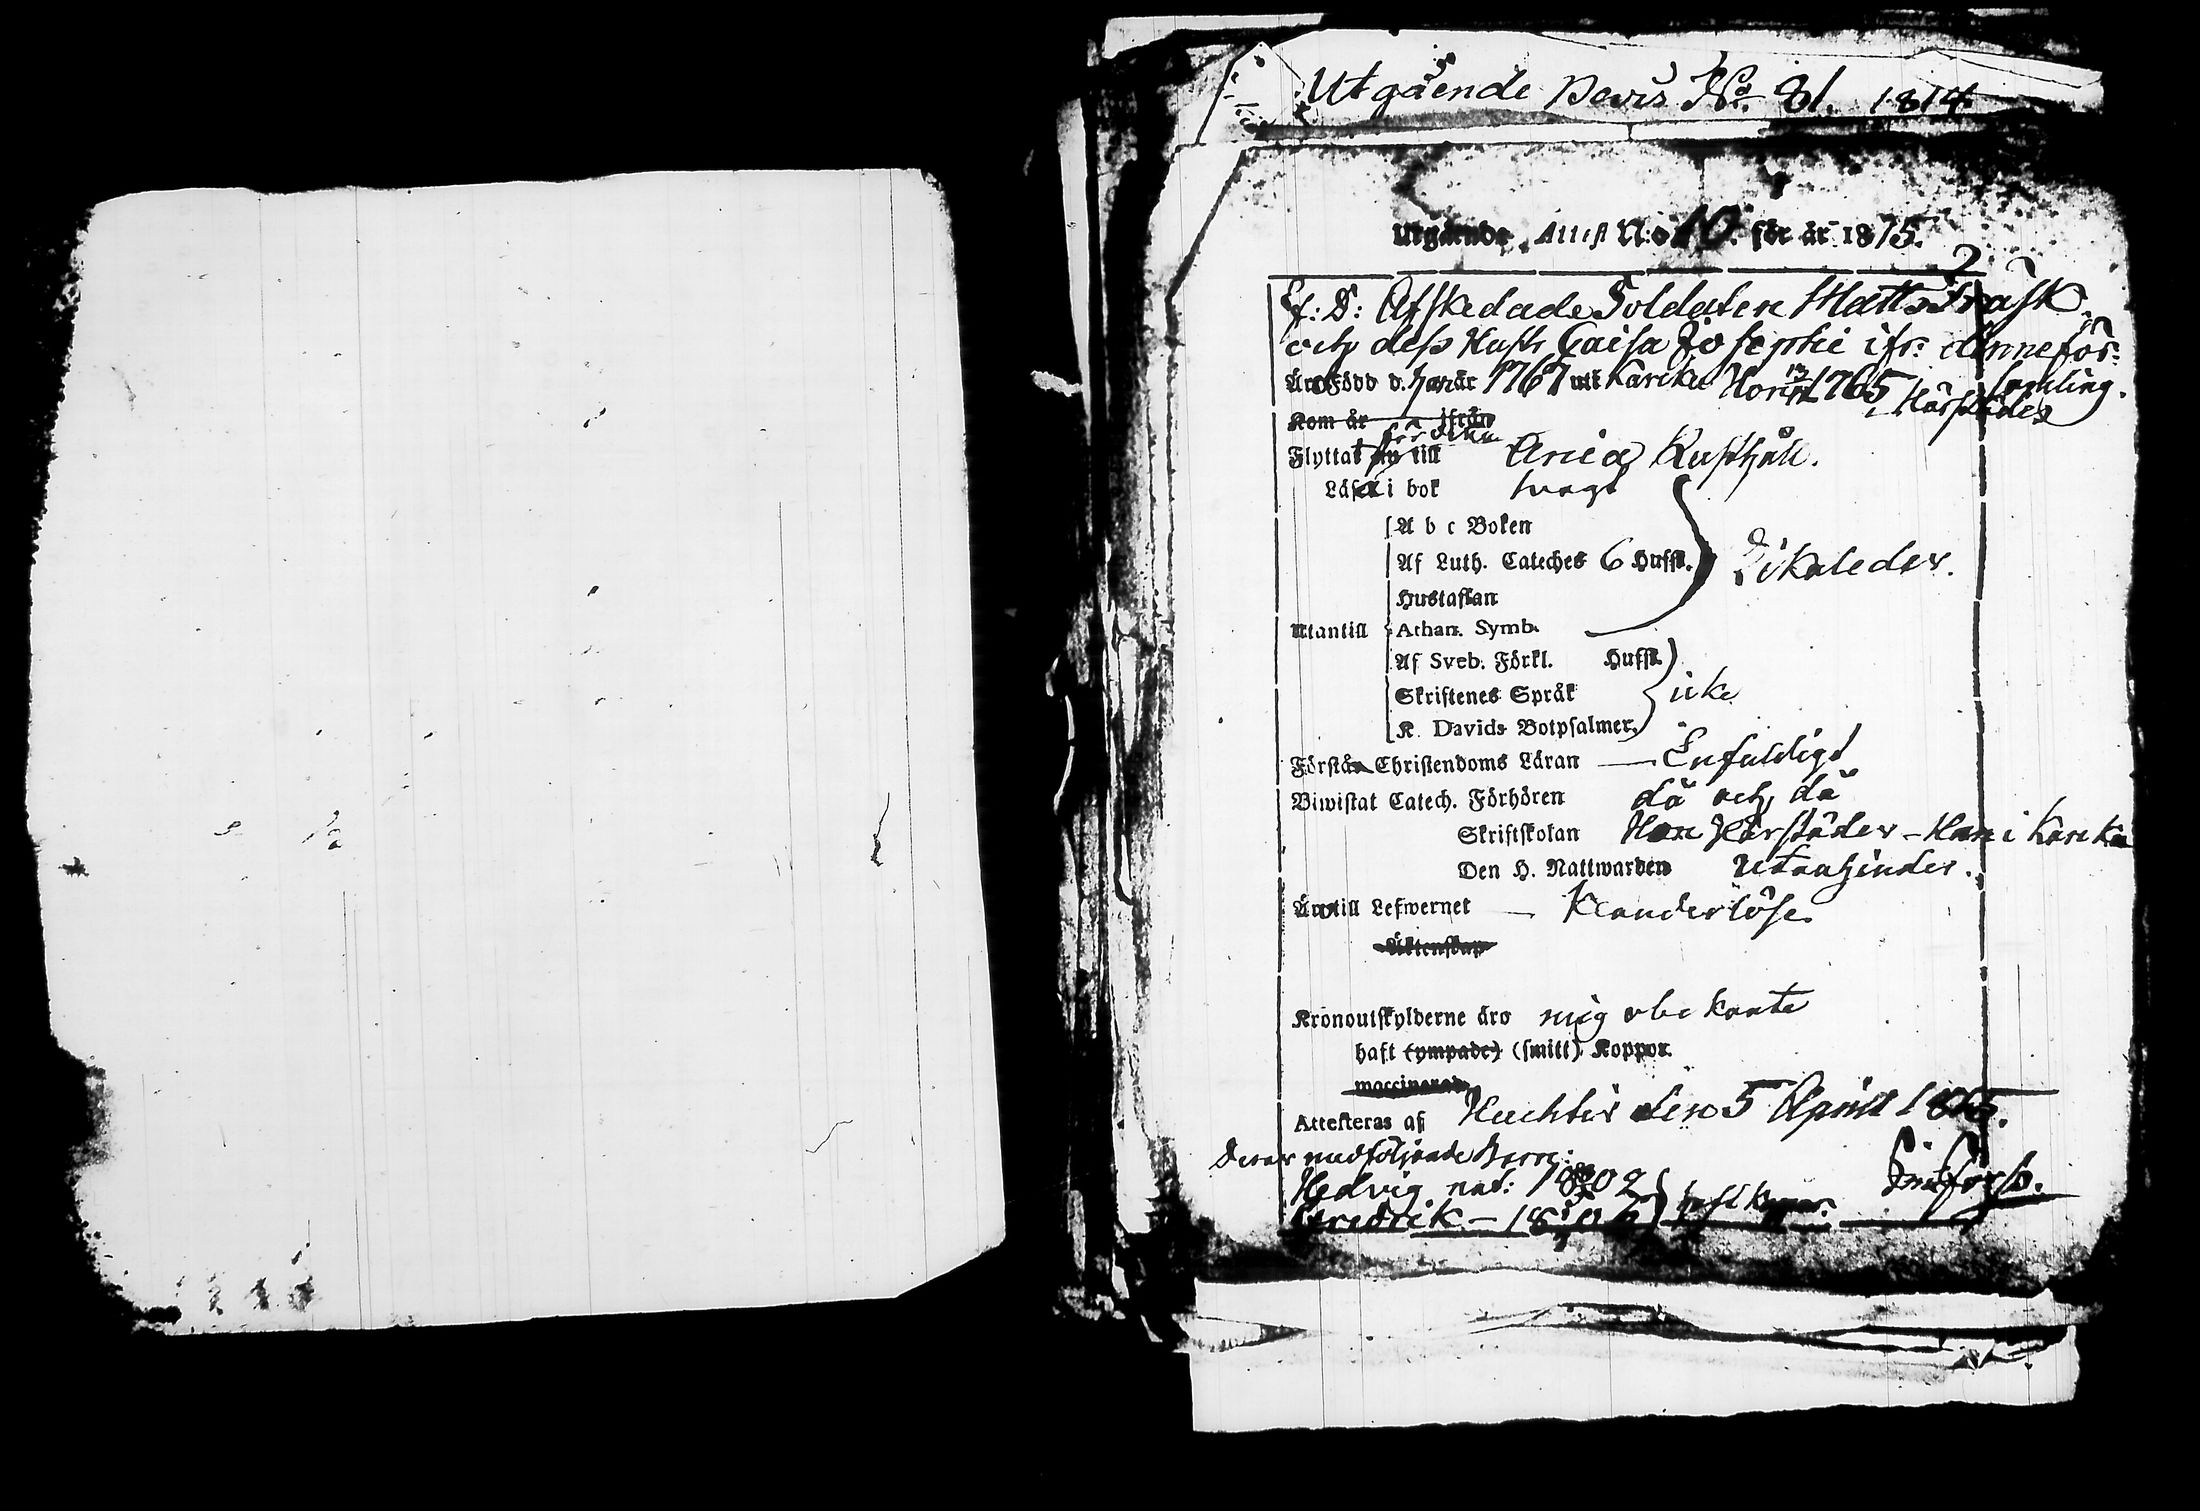 Utgående Bevis No. 81. 1814
Utgående Attest N:o 10. för år 1815.
2
f: d: Afskedade Soldaten Matts Trask
och dess Hustr Caisa Josephi ifr: Annefös:
Äro Född d. han år 1767 uti Kareka Hon 1765 i Härstädes
samling.
Kom år ifrån
Flyttat till Rusthåll.
Läsa i bok svagt
A b c Boken
Af Luth. Cateches 6 Hufst. Likaledes.
Hustaflan
Utantill Athan. Symb.
Af Sveb. Förkl. Hufst.
Skriftenes Språk icke
K. Davids Botpsalmer.
Förstå Christendoms Läran — Enfaldigt
Biwistat Catech. Förhören då och då
Skriftskolan Hon Härstädes – Han i Kareka
Den H. Nattwarden utan hinder.
Äro till Lefwernet — klanderlöse
Äktenskap
Kronoutskylderne äro mig obekante
haft (ympade) (smitt) Koppor.
waccinerad
Attesteras af Huchtis den 5 April 1815.
Deras medföljande Barn:
Hedvig nat: 1802
Fredrik – 18 haft koppor.